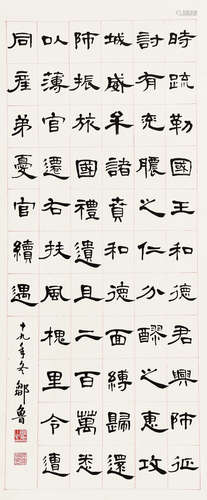 時疏勒國王和德君興師征
討有兖膿之仁分醪之惠攻
城威牟諸賁和德面縛歸還
師振旅國禮遺且二百萬悉
以薄官遷右扶風槐里令遭
同產弟憂官續遇
十九年冬鄒魯